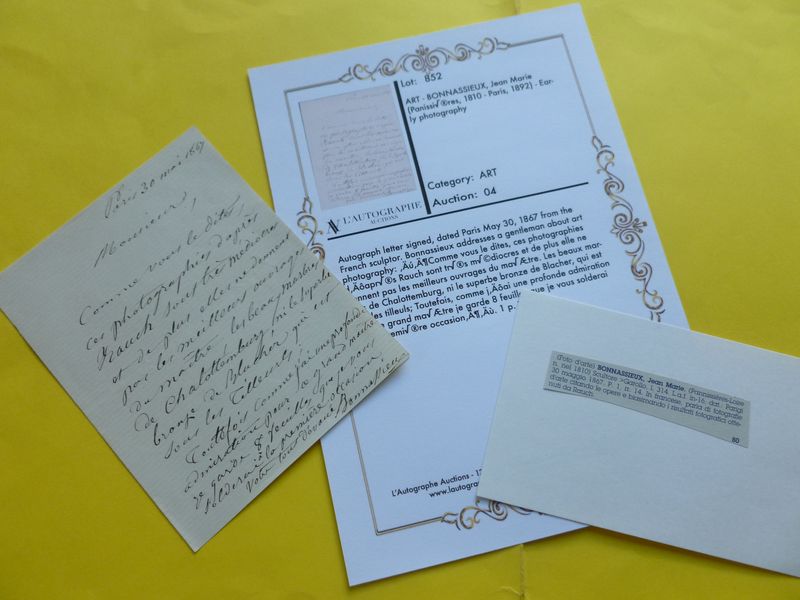 Paris 30 mai 1867
Monsieur,
Comme vous le dites,
ces photographies d'après
Rauch sont très médiocres
et de plus elle ne donnent
pas les meilleurs ouvrages
du maître. les beaux marbres
de Chalottemburg, ni le superbe
bronze de Blucher, qui est
sous les Tilleuls;
Toutefois comme j'ai une profonde
admiration pour ce grand maître
je garde 8 feuilles que je vous
solderai à la première occasion
Votre tout dévoué Bonnassieux
Lot: 852
ART - BONNASSIEUX, Jean Marie
(Panissi√®res, 1810 - Paris, 1892) - Ear-
ly photography
Category: ART
Auction: 04
L'AUTOGRAPHE
AUCTIONS
Autograph letter signed, dated Paris May 30, 1867 from the
French sculptor. Bonnassieux addresses a gentleman about art
photography: ‚Äú‚Ķ¶Comme vous le dites, ces photographies
d‚Äôapr√®s Rauch sont tr√®s m√©diocres et de plus elle ne
nnent pas les meilleurs ouvrages du ma√Ætre. Les beaux mar-
de Chalottemburg, ni le superbe bronze de Blacher, qui est
les tilleuls; Toutefois, comme j‚Äôai une profonde admiration
grand ma√Ætre je garde 8 feuill que je vous solderai
emi√®re occasion‚Ķ¶‚Äù. 1 p.
L'Autographe Auctions - 1
www.lautogra
(Foto d'arte) BONNASSIEUX, Jean Marie. (Pannissières-Loire
n. nel 1810) Scultore >Garollo, I, 314 L.a.f. in-16, dat. Parigi
30 maggio 1867. P. 1, rr. 14. In francese, parla di fotografie
d'arte citando le opere e biasimando i risultati fotografici otte-
nuti da Rauch.
80